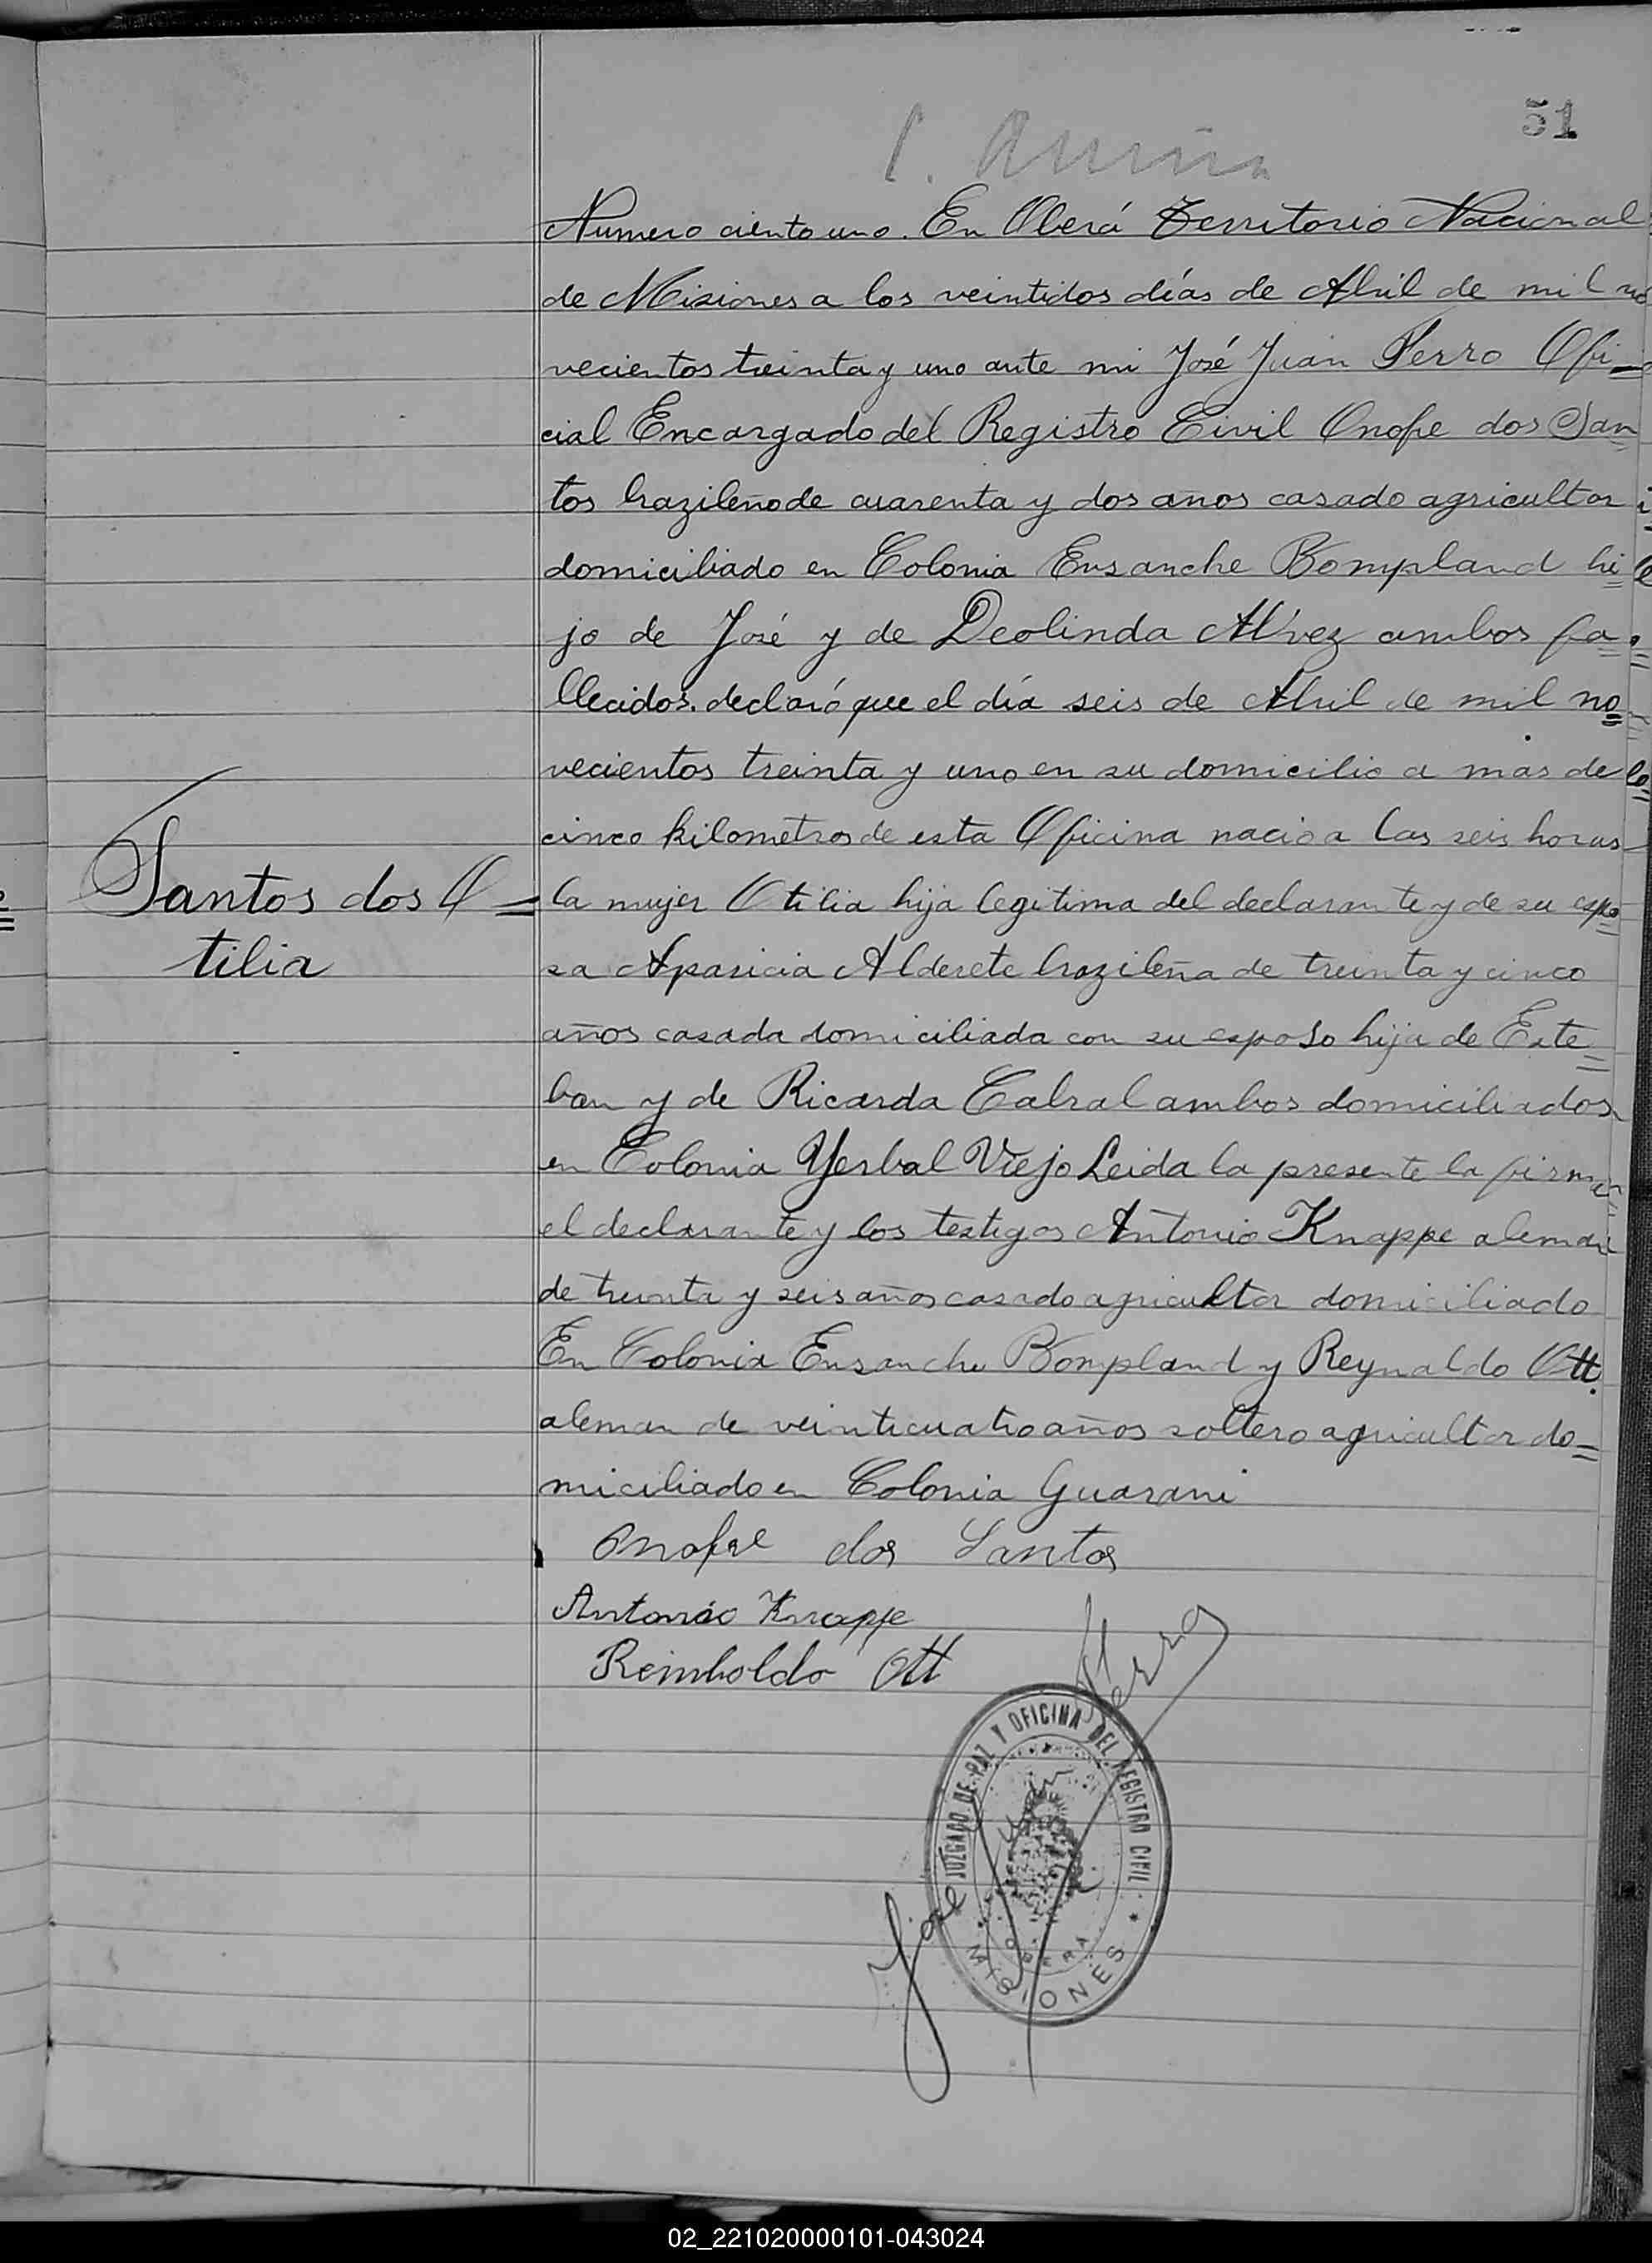 51
Numero ciento uno. En Oberá Territorio Nacional
de Misiones a los veintidos días de Abril de mil no
vecientos treinta y uno ante mi José Juan Ferro Ofi=
cial Encargado del Registro Civil Onofre dos San=
tos brazileño de cuarenta y dos años casado agricultor
domiciliado en Colonia Ensanche Bompland hi=
jo de José y de Deolinda Alvez ambos fa=
llecidos. declaró que el día seis de Abril de mil no=
vecientos treinta y uno en su domicilio a mas de
cinco kilometros de esta Oficina nacio a las seis horas
Santos dos O=
tilia
la mujer Otilia hija legitima del declarante y de su espo=
sa Aparicia Alderete brazileña de treinta y cinco
años casada domiciliada con su esposo hija de Este=
ban y de Ricarda Cabral ambos domiciliados
en Colonia Yerbal Viejo Leida la presente la firman
el declarante y los testigos Antonio Knappe aleman
de treinta y seis años casado agricultor domiciliado
En Colonia Ensanche Bompland y Reynaldo Ott.
aleman de veinticuatro años soltero agricultor do=
miciliado en Colonia Guarani
Onofre dos Santos
Antonio Knappe
Reinholdo Ott
José Juan Ferro
JUZGADO DE PAZ Y OFICINA DEL REGISTRO CIVIL
OBERA
MISIONES
02_221020000101-043024